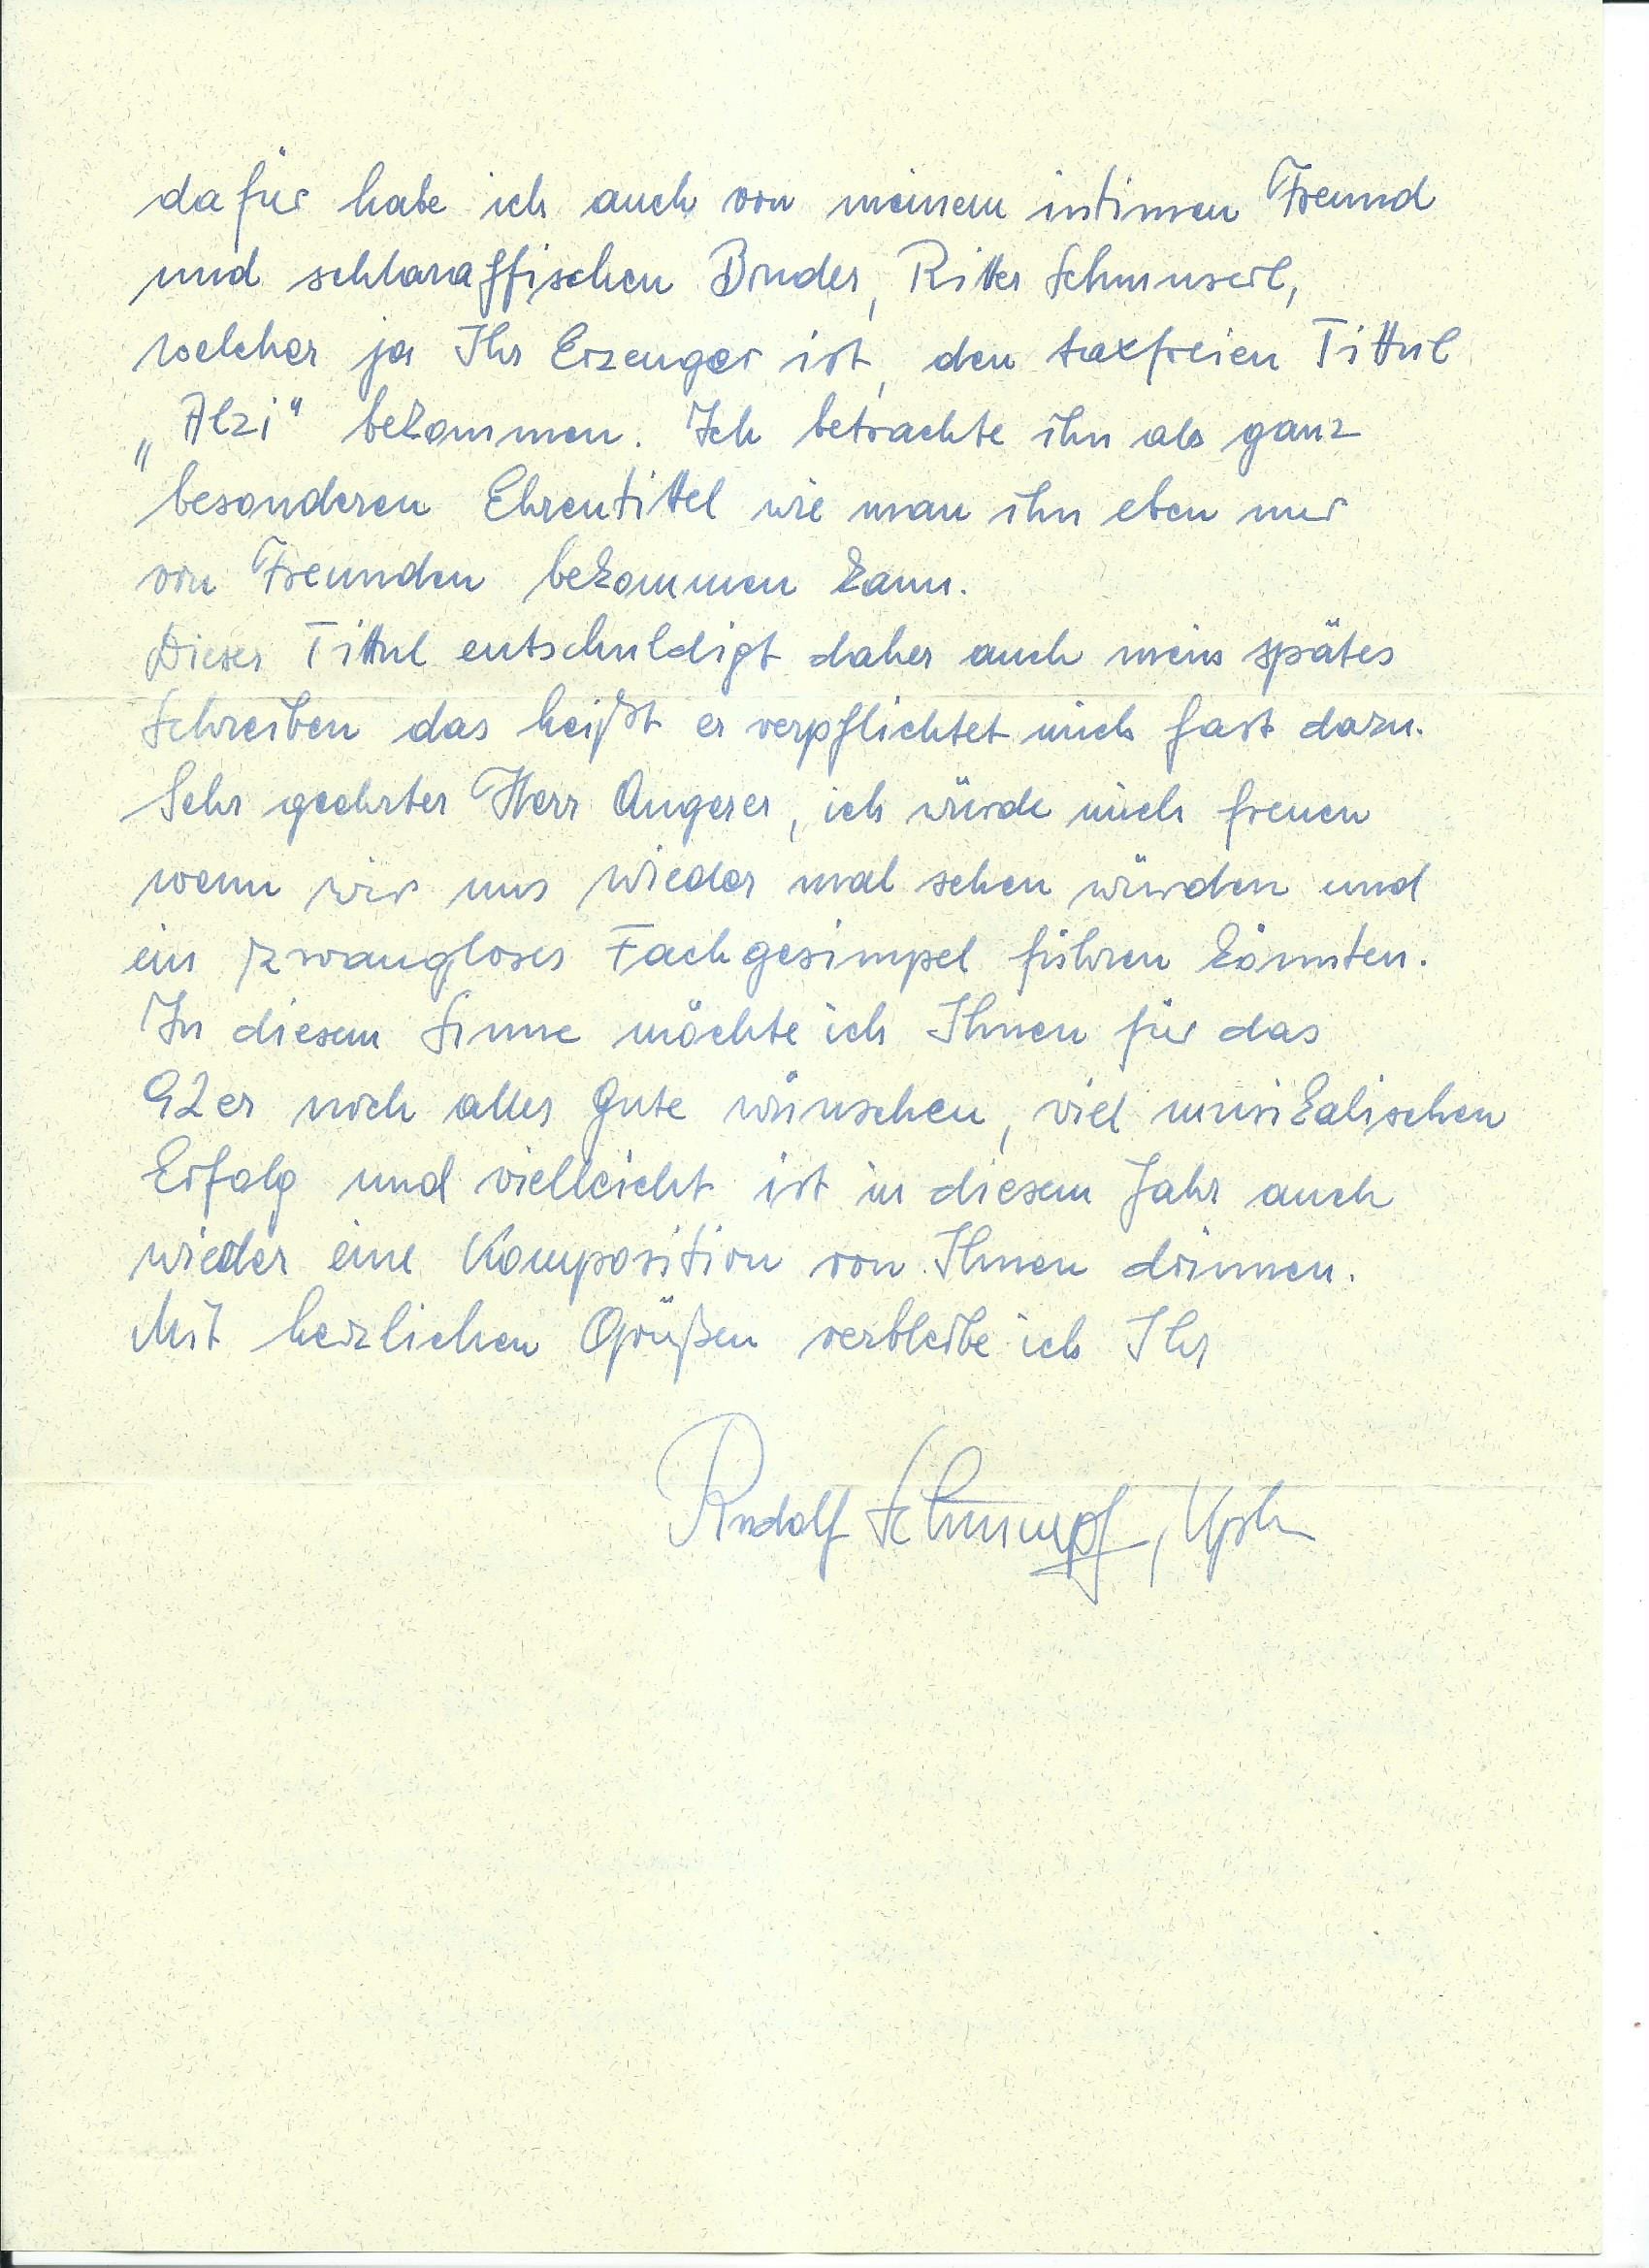 dafür habe ich auch von meinem intimen Freund
und schlaraffischen Bruder, Ritter Schmuserl,
welcher ja Ihr Erzeuger ist, den taxfreien Tittul
„Alzi“ bekommen. Ich betrachte ihn als ganz
besonderen Ehrentittel wie man ihn eben nur
von Freunden bekommen kann.
Dieser Tittul entschuldigt daher auch mein spätes
Schreiben das heißt er verpflichtet mich fast dazu.
Sehr geehrter Herr Angerer, ich würde mich freuen
wenn wir uns wieder mal sehen würden und
ein zwangloses Fachgesimpel führen könnten.
In diesem Sinne möchte ich Ihnen für das
92er noch alles Gute wünschen, viel musikalischen
Erfolg und vielleicht ist in diesem Jahr auch
wieder eine Komposition von Ihnen drinnen.
Mit herzlichen Grüßen verbleibe ich Ihr
Rudolf Schrumpf,